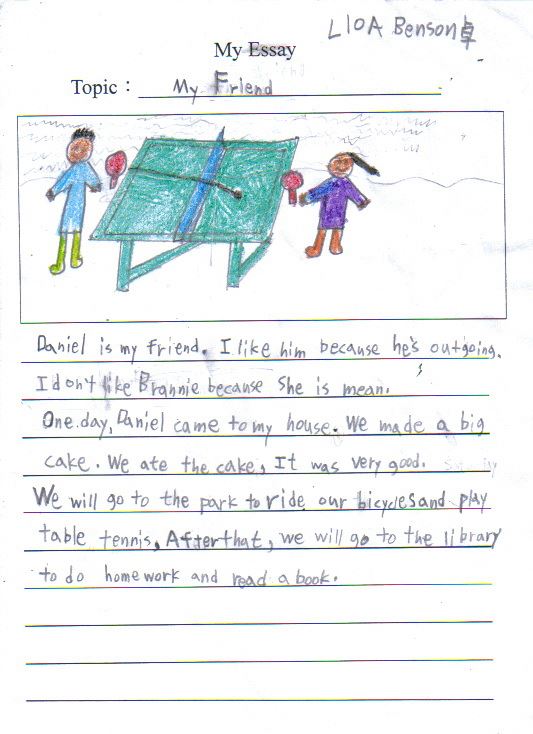 L10A Benson卓
My Essay
Topic： My Friend
Daniel is my friend. I like him because he's outgoing.
I don't like Brannie because She is mean.
One day, Daniel came to my house. We made a big
cake. We ate the cake, It was very good.
We will go to the park to ride our bicycles and play
table tennis, After that, we will go to the library
to do homework and read a book.